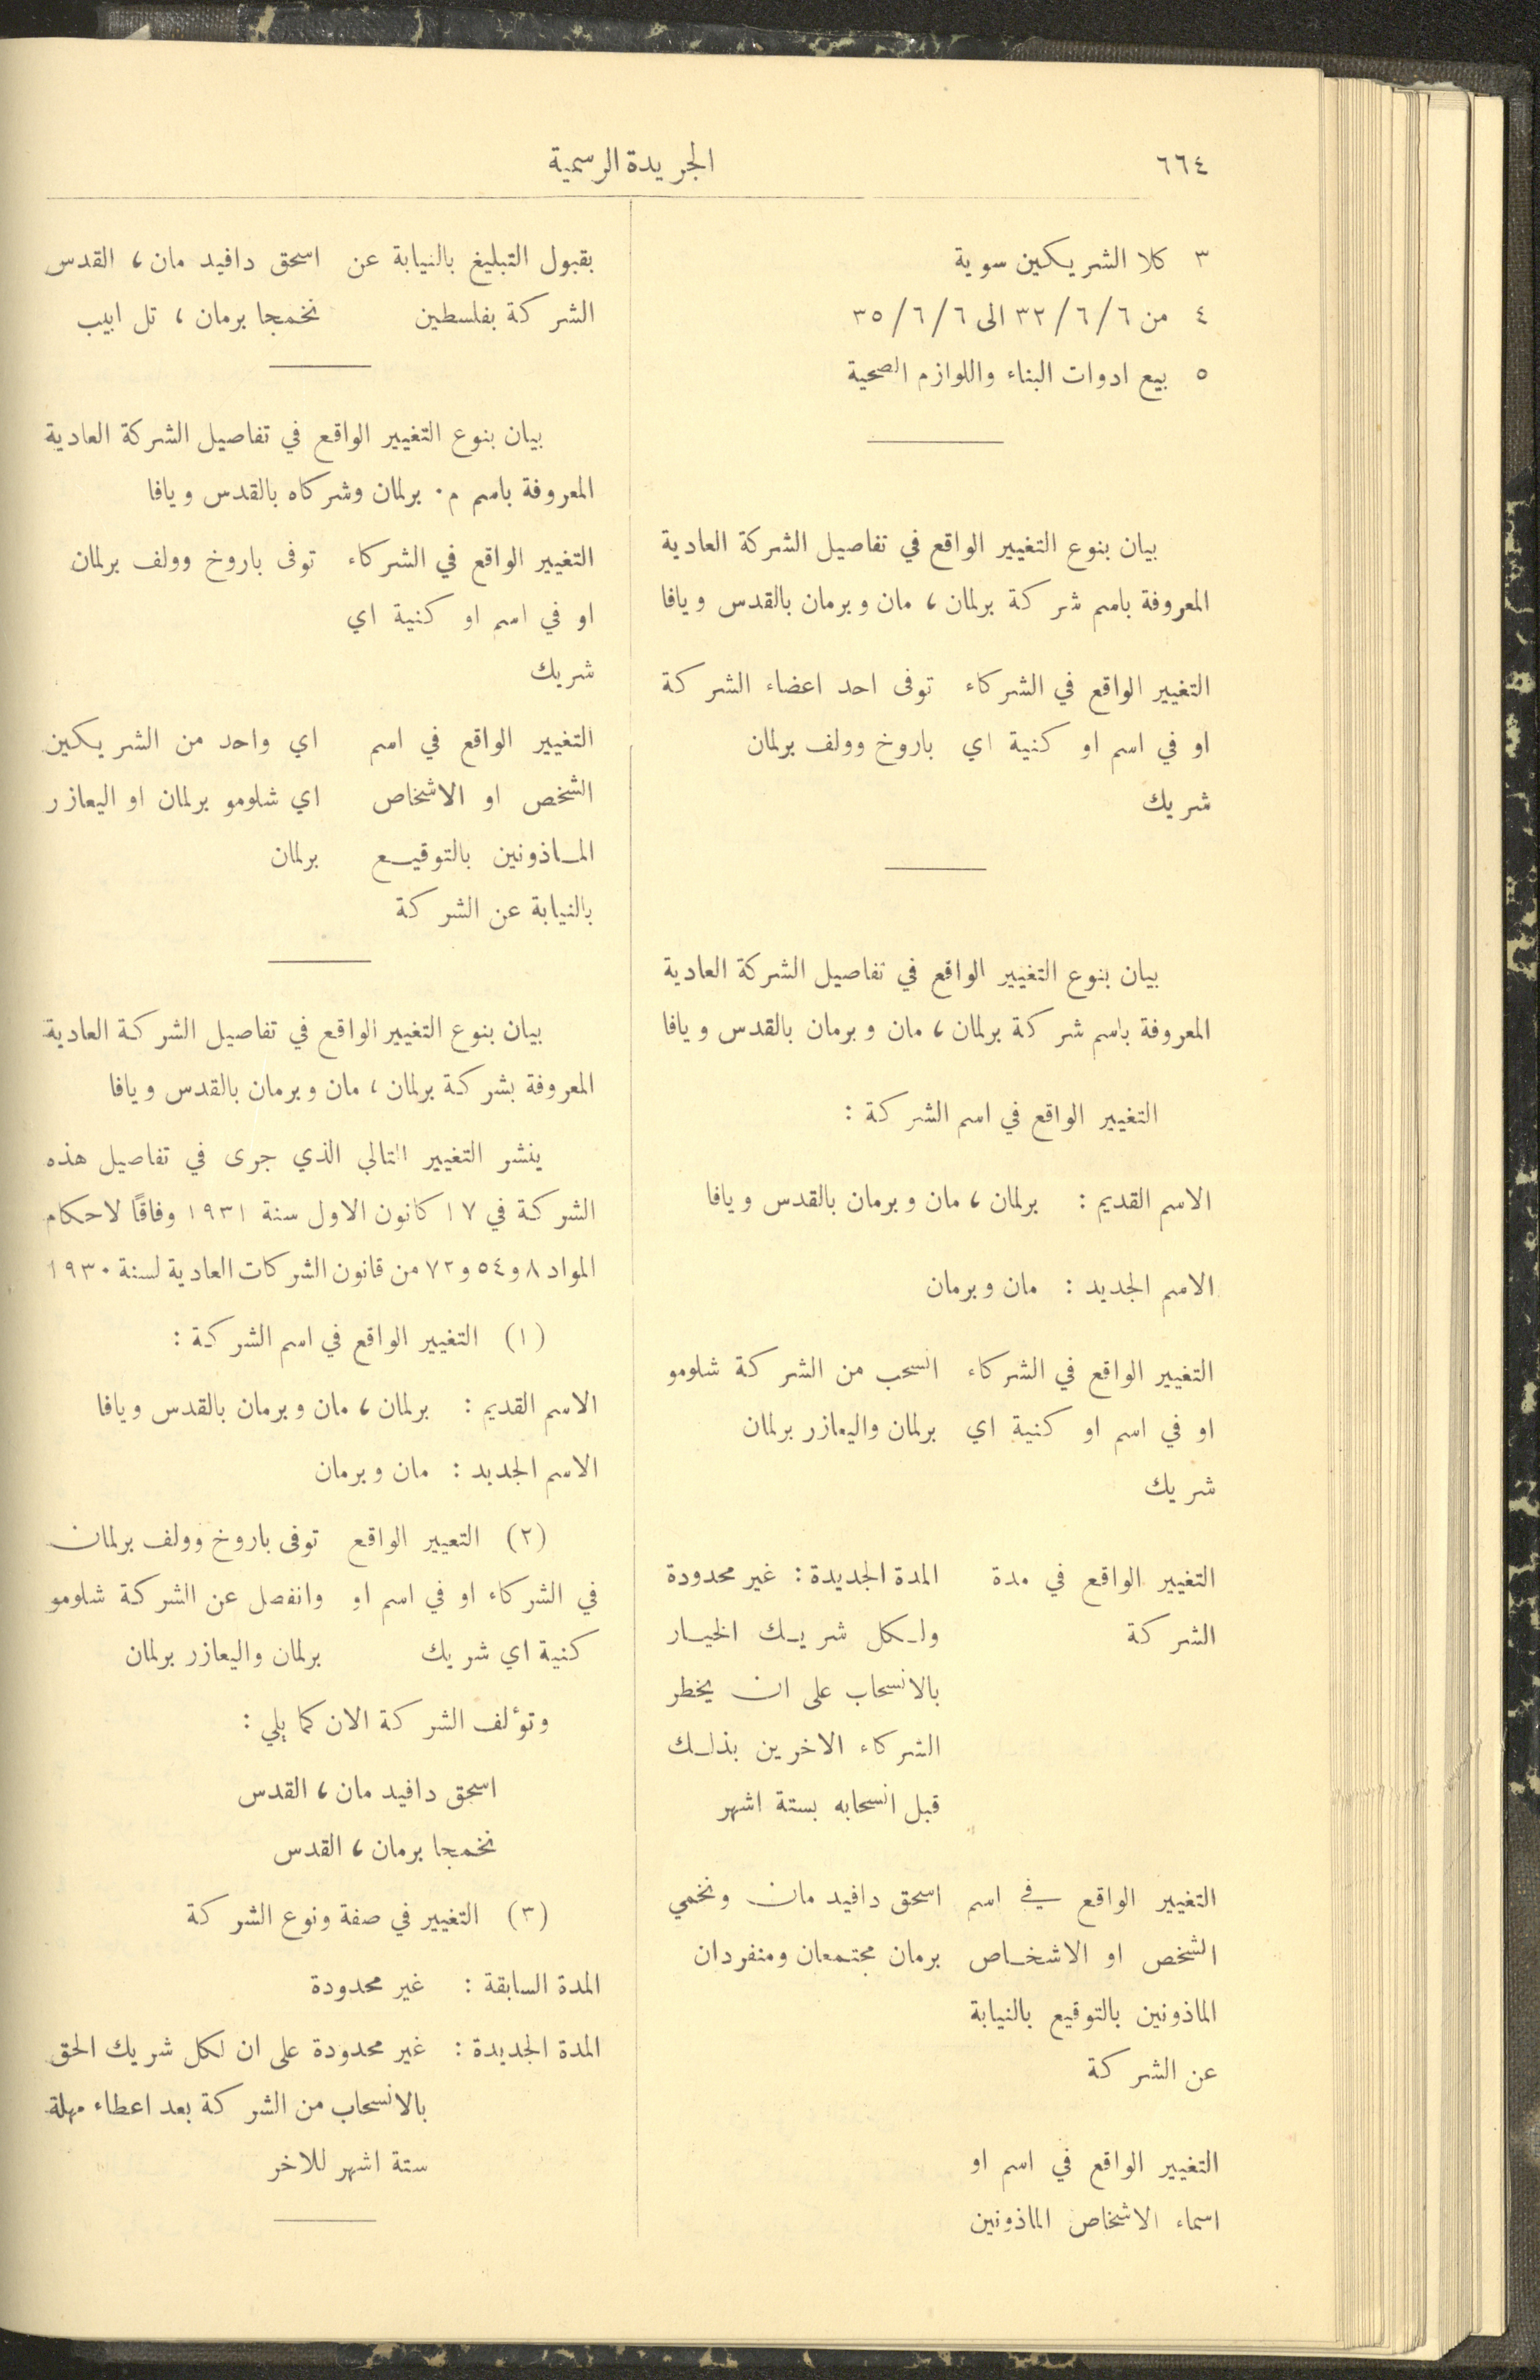 ٦٦٤
الجريدة الرسمية
٣ كلا الشريكين سوية
٤ من ٦/٦/٣٢ الى ٦/٦/٣٥
٥ بيع ادوات البناء واللوازم الصحية
بيان بنوع التغيير الواقع في تفاصيل الشركة العادية
المعروفة باسم شركة برلمان، مان وبرمان بالقدس ويافا
التغيير الواقع في الشركاء توفى احد اعضاء الشركة
او في اسم او كنية اي باروخ وولف برلمان
شريك
بيان بنوع التغيير الواقع في تفاصيل الشركة العادية
المعروفة باسم شركة برلمان، مان وبرمان بالقدس ويافا
التغيير الواقع في اسم الشركة :
الاسم القديم : برلمان، مان وبرمان بالقدس ويافا
الاسم الجديد : مان وبرمان
التغيير الواقع في الشركاء انسحب من الشركة شلومو
او في اسم او كنية اي برلمان واليعازر برلمان
شريك
التغيير الواقع في مدة المدة الجديدة : غير محدودة
الشركة ولكل شريك الخيار
بالانسحاب على ان يخطر
الشركاء الاخرين بذلك
قبل انسحابه بستة اشهر
التغيير الواقع في اسم اسحق دافيد مان ونخمي
الشخص او الاشخاص برمان مجتمعان ومنفردان
الماذونين بالتوقيع بالنيابة
عن الشركة
التغيير الواقع في اسم او
اسماء الاشخاص الماذونين
بقبول التبليغ بالنيابة عن اسحق دافيد مان، القدس
الشركة بفلسطين نخمجا برمان، تل ابيب
بيان بنوع التغيير الواقع في تفاصيل الشركة العادية
المعروفة باسم م. برلمان وشركاه بالقدس ويافا
التغيير الواقع في الشركاء توفى باروخ وولف برلمان
او في اسم او كنية اي
شريك
التغيير الواقع في اسم اي واحد من الشريكين
الشخص او الاشخاص اي شلومو برلمان او اليعازر
الماذونين بالتوقيع برلمان
بالنيابة عن الشركة
بيان بنوع التغيير الواقع في تفاصيل الشركة العادية
المعروفة بشركة برلمان، مان وبرمان بالقدس ويافا
ينشر التغيير التالي الذي جرى في تفاصيل هذه
الشركة في ١٧ كانون الاول سنة ١٩٣١ وفاقًا لاحكام
المواد ٨ و٥٤ و٧٢ من قانون الشركات العادية لسنة ١٩٣٠
(١) التغيير الواقع في اسم الشركة :
الاسم القديم : برلمان، مان وبرمان بالقدس ويافا
الاسم الجديد : مان وبرمان
(٢) التعيير الواقع توفى باروخ وولف برلمان
في الشركاء او في اسم او وانفصل عن الشركة شلومو
كنية اي شريك برلمان واليعازر برلمان
وتؤلف الشركة الان كما يلي :
اسحق دافيد مان، القدس
نخمجا برمان، القدس
(٣) التغيير في صفة ونوع الشركة
المدة السابقة : غير محدودة
المدة الجديدة : غير محدودة على ان لكل شريك الحق
بالانسحاب من الشركة بعد اعطاء مهلة
ستة اشهر للاخر